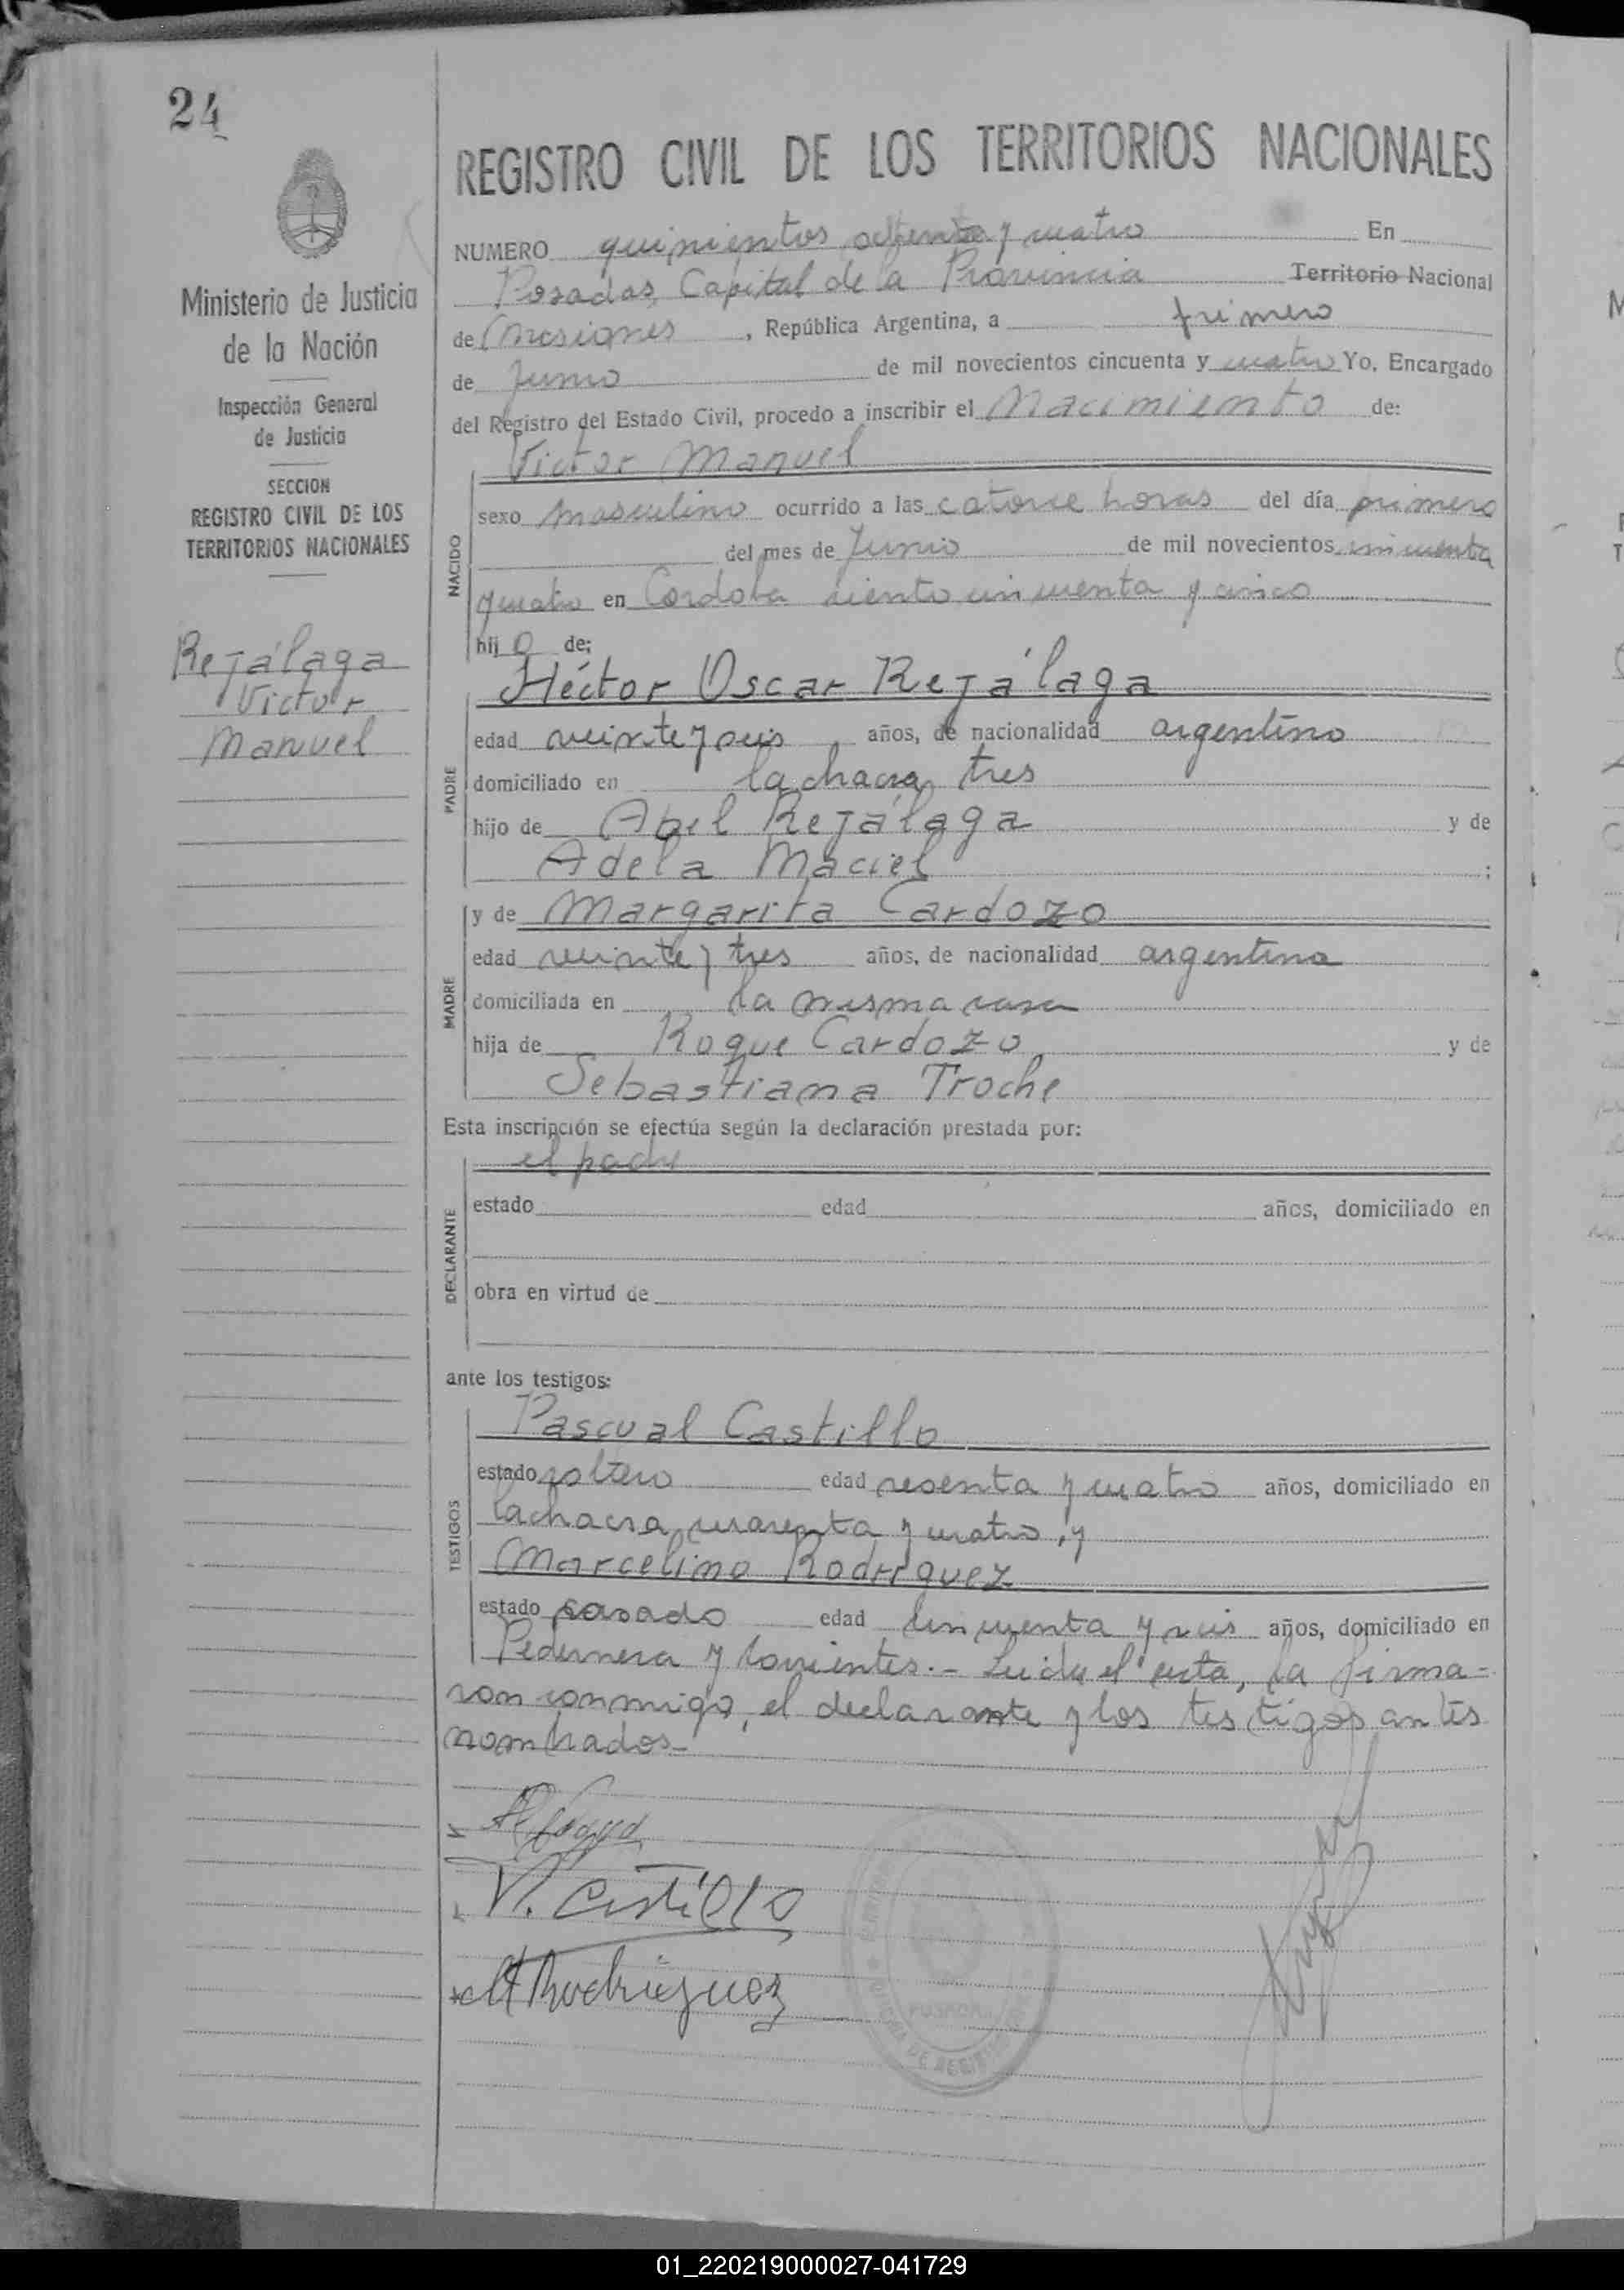 24
REGISTRO CIVIL DE LOS TERRITORIOS NACIONALES
Ministerio de Justicia
de la Nación
Inspección General
de Justicia
SECCION
REGISTRO CIVIL DE LOS
TERRITORIOS NACIONALES
Rejálaga
Victor
Manuel
NUMERO quinientos ochenta y cuatro En
Posadas, Capital de la Provincia Territorio Nacional
de Misiones, República Argentina, a primero
de Junio de mil novecientos cincuenta y cuatro Yo, Encargado
del Registro del Estado Civil, procedo a inscribir el Nacimiento de:
Victor Manuel
NACIDO
sexo masculino ocurrido a las catorce horas del día primero
del mes de Junio de mil novecientos cincuenta
y cuatro en Cordoba ciento cincuenta y cinco
hijo de;
Héctor Oscar Rejálaga
PADRE
edad veinte y seis años, de nacionalidad argentino
domiciliado en la chacra tres
hijo de Abel Rejálaga y de
Adela Maciel ;
y de Margarita Cardozo
MADRE
edad veinte y tres años, de nacionalidad argentina
domiciliada en la misma casa
hija de Roque Cardozo y de
Sebastiana Troche
Esta inscripción se efectúa según la declaración prestada por:
el padre
DECLARANTE
estado edad años, domiciliado en
obra en virtud de
ante los testigos:
Pascual Castillo
TESTIGOS
estado soltero edad sesenta y cuatro años, domiciliado en
la chacra cuarenta y cuatro, y
Marcelino Rodriguez
estado casado edad cincuenta y seis años, domiciliado en
Pedernera y Corrientes.- Leida el acta, la firma=
ron conmigo, el declarante y los testigos antes
nombrados.-
P. Castillo
M Rodriguez
POSADAS
01_220219000027-041729